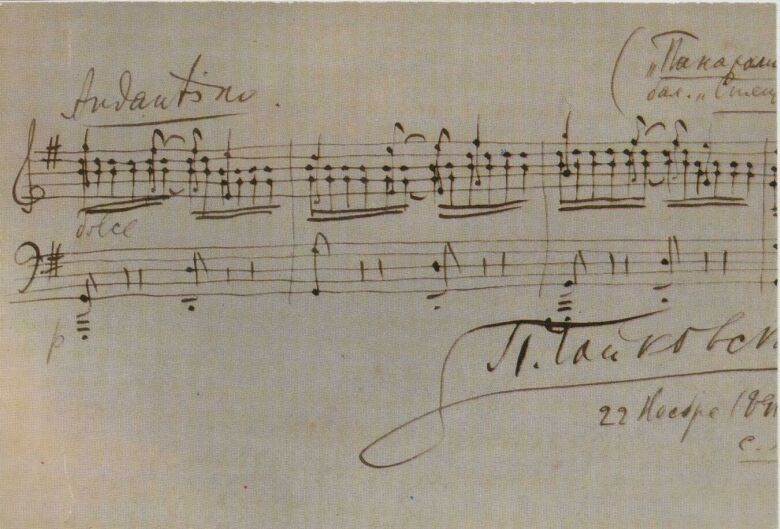 Andantino.
„Панорама
бал. „Спящ
dolce
p
П. Чайковск
22 Ноября 189
с.